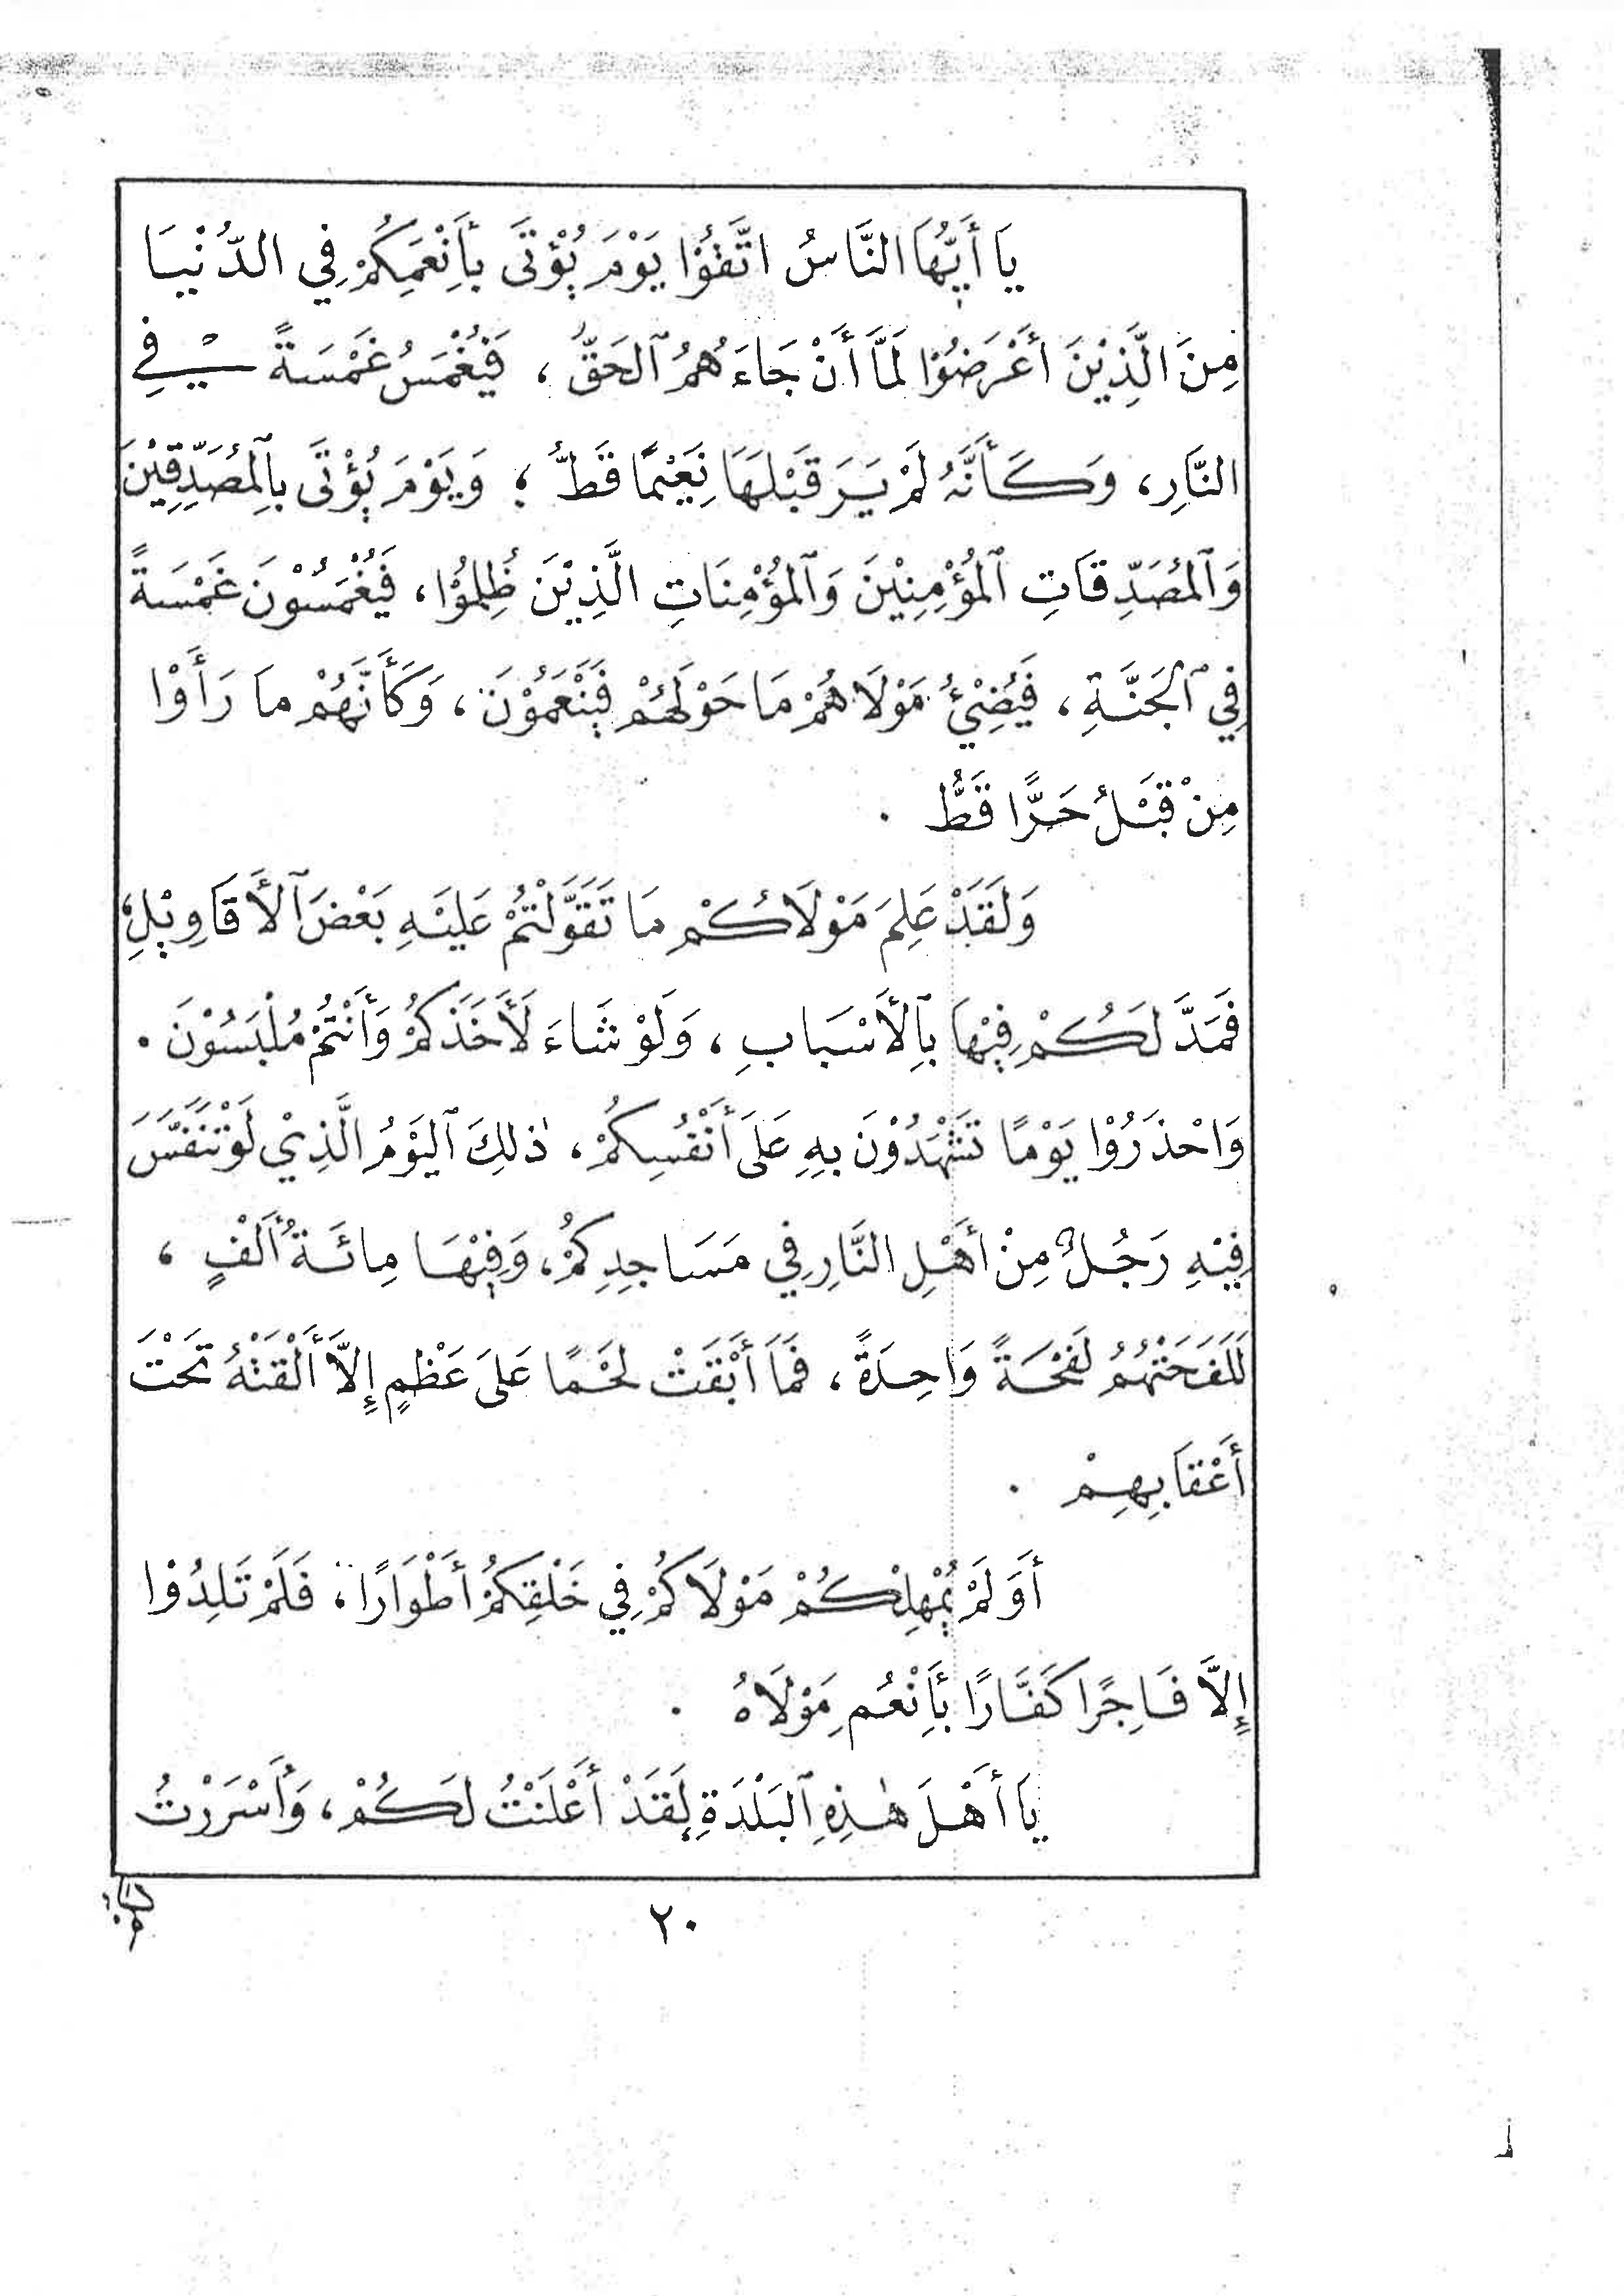 يَا أَيُّهَا النَّاسُ اتَّقُوْا يَوْمَ يُؤْتَى بِأَنْعَمِكُمْ فِي الدُّنْيَا
مِنَ الَّذِيْنَ أَعْرَضُوْا لَمَّا أَنْ جَاءَهُمُ ٱلحَقُّ ، فَيُغْمَسُ غَمْسَةً فِي
النَّارِ، وَكَأَنَّهُ لَمْ يَرَ قَبْلَهَا نَعِيْمًا قَطُّ ؛ وَيَوْمَ يُؤْتَى بِٱلمُصَدِّقِيْنَ
وَٱلمُصَدِّقَاتِ ٱلمُؤْمِنِيْنَ وَٱلمُؤْمِنَاتِ الَّذِيْنَ ظُلِمُوْا، فَيُغْمَسُوْنَ غَمْسَةً
فِي ٱلجَنَّةِ ، فَيُضِيْءُ مَوْلَاهُمْ مَا حَوْلَهُمْ فَيَنْعَمُوْنَ ، وَكَأَنَّهُمْ مَا رَأَوْا
مِنْ قَبْلُ حَرًّا قَطُّ .
وَلَقَدْ عَلِمَ مَوْلَاكُمْ مَا تَقَوَّلْتُمْ عَلَيْهِ بَعْضَ ٱلأَقَاوِيْلِ؛
فَمَدَّ لَكُمْ فِيْهَا بِٱلأَسْبَابِ ، وَلَوْ شَاءَ لَأَخَذَكُمْ وَأَنْتُمْ مُلْبَسُوْنَ .
وَاحْذَرُوْا يَوْمًا تَشْهَدُوْنَ بِهِ عَلَى أَنْفُسِكُمْ ، ذٰلِكَ ٱليَوْمُ الَّذِيْ لَوْ تَنَفَّسَ
فِيْهِ رَجُلٌ مِنْ أَهْلِ النَّارِ فِي مَسَاجِدِكُمْ، وَفِيْهَا مِائَةُ أَلْفٍ ،
لَلَفَحَتْهُمُ لَفْحَةً وَاحِدَةً ، فَمَا أَبْقَتْ لَحْمًا عَلَى عَظْمٍ إِلَّا أَلْقَتْهُ تَحْتَ
أَعْقَابِهِمْ .
أَوَلَمْ يُمْهِلْكُمْ مَوْلَاكُمْ فِي خَلْقِكُمْ أَطْوَارًا ، فَلَمْ تَلِدُوْا
إِلَّا فَاجِرًا كَفَّارًا بِأَنْعُمِ مَوْلَاهُ .
يَا أَهْلَ هٰذِهِ ٱلبَلْدَةِ لَقَدْ أَعْلَنْتُ لَكُمْ ، وَأَسْرَرْتُ
٢٠